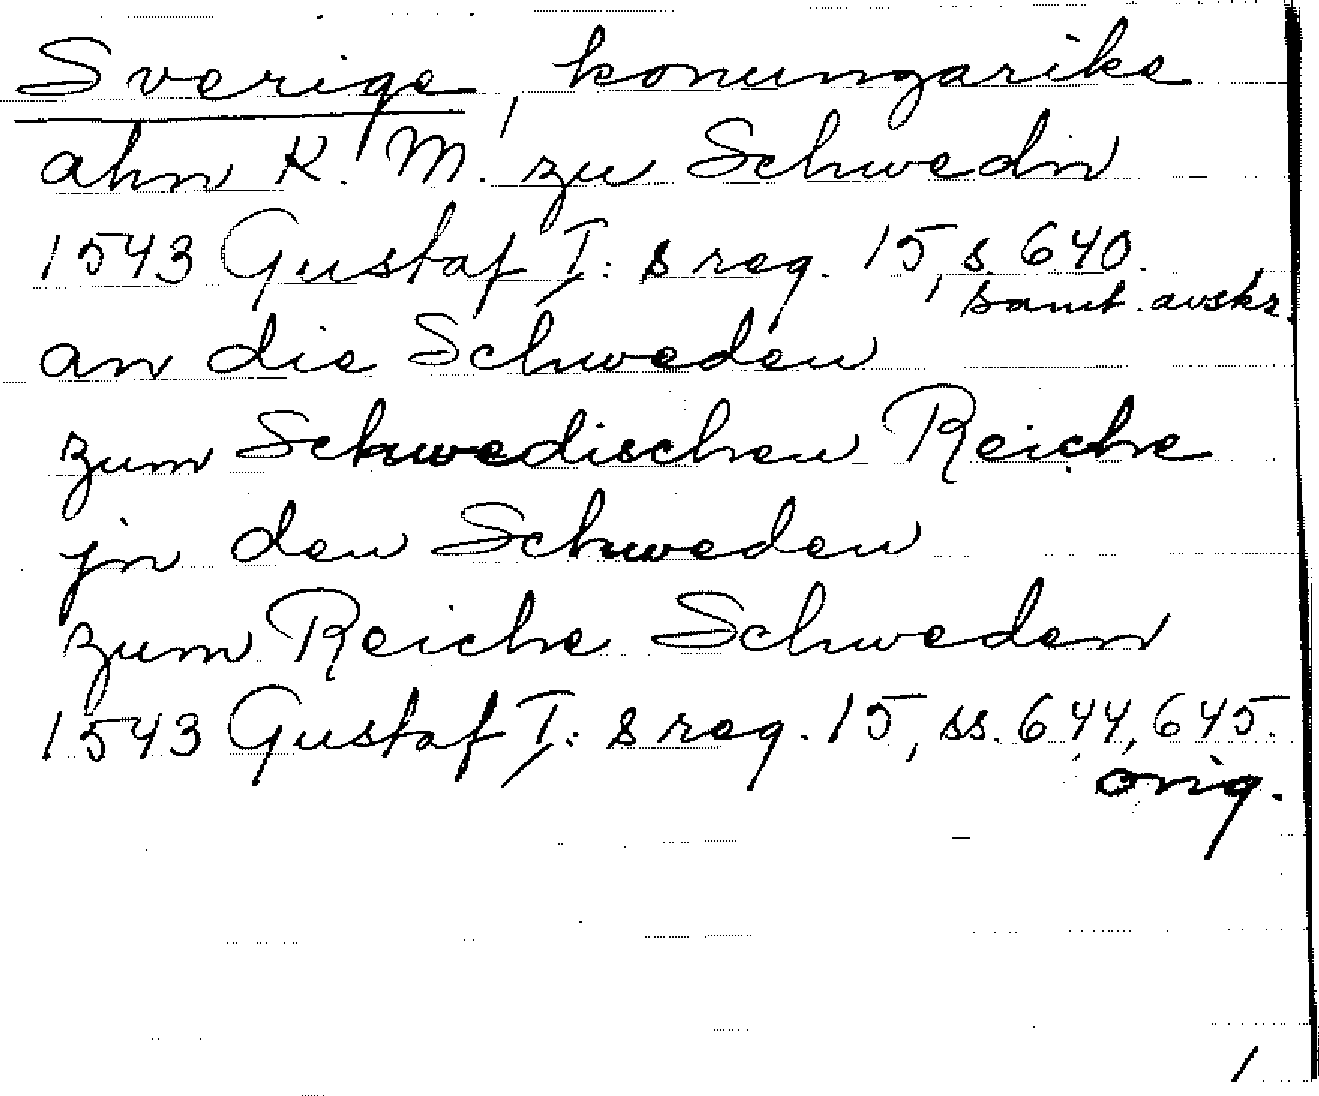 Sverige, konungarike
ahn K. M. zu Schwedn
1543 Gustaf I:s reg. 15, s. 640.
samt. avskr.
an die Schweden
zum Schwedischen Reiche
jn den Schweden
zum Reiche Schweden
1543 Gustaf I:s reg. 15, ss. 644, 645.
orig.
1